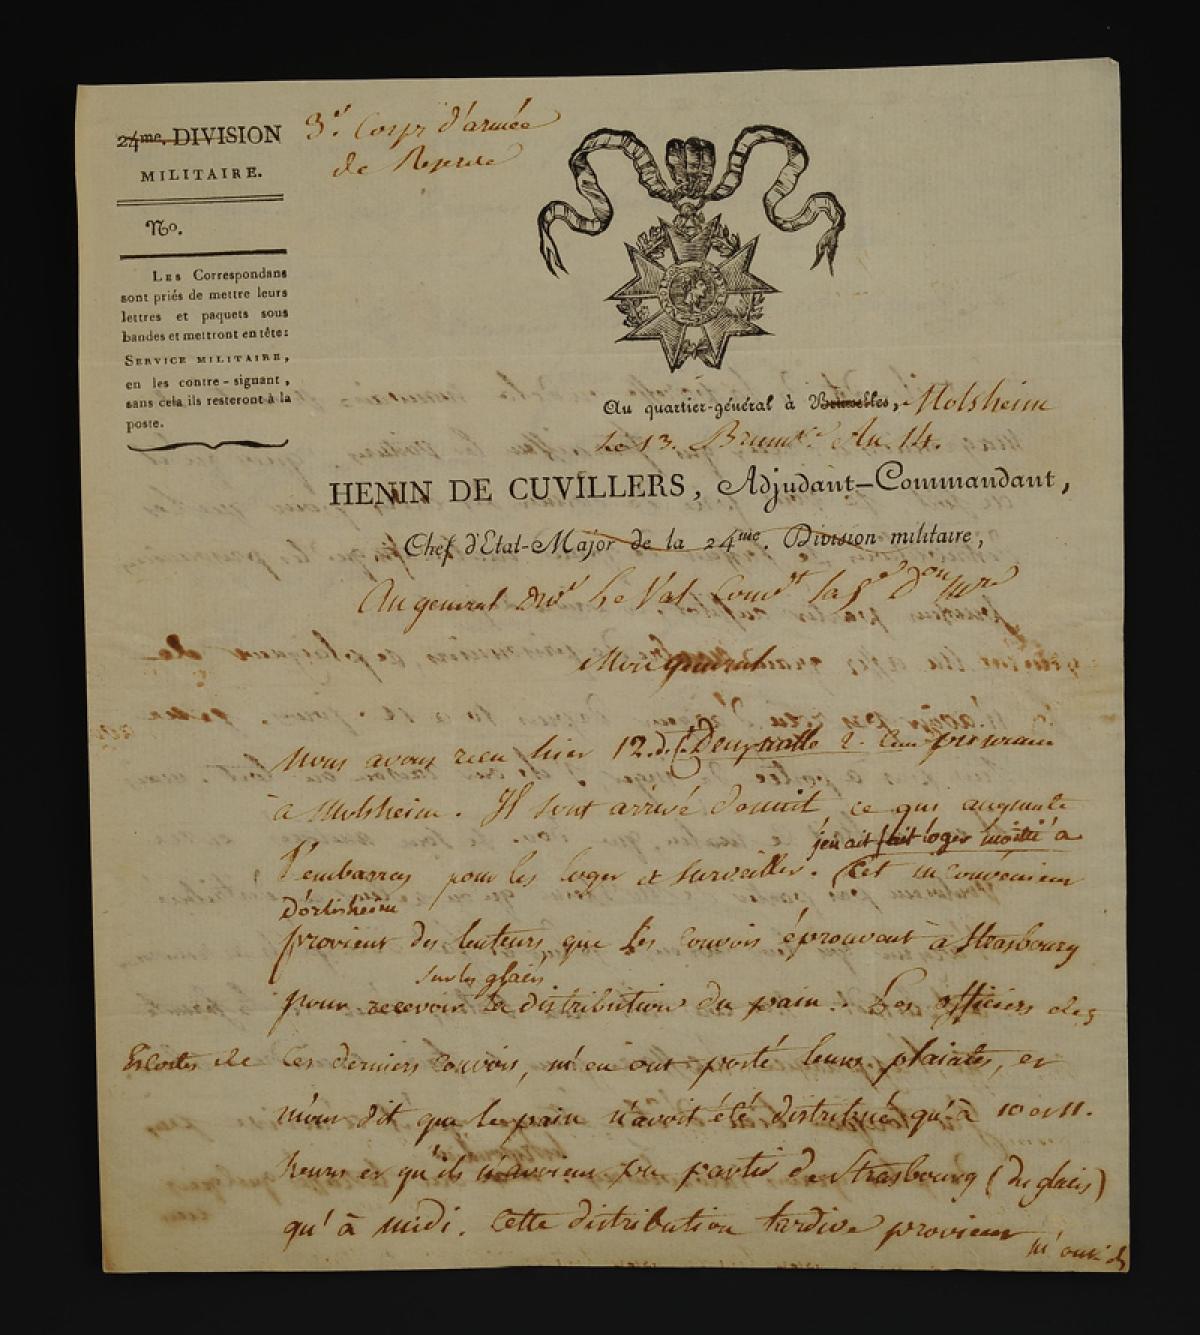 24me. DIVISION
MILITAIRE.
No.
LES Correspondans
sont priés de mettre leurs
lettres et paquets sous
bandes et mettront en tête:
SERVICE MILITAIRE,
en les contre-signant,
sans cela ils resteront à la
poste.
3e. Corps d'armée
de Reserve
Au quartier-général à Bruxelles, Molsheim
le 13. Brumre. An 14.
HENIN DE CUVILLERS, Adjudant-Commandant,
Chef d'Etat-Major de la 24me. Division militaire,
Au general Le Val la
Mon general
Nous avons recu hier 12. d. Cent prisonniers
à Molsheim. Il sont arrivé denuit ce qui augmente
j'en ait fait loger moitié a
l'embarras pour les loger et surveiller. Cet inconvenient
Dorlisheim
provient des lenteurs que les convois éprouvent à Strasbourg
sur les glacis
pour recevoir la distribution du pain. Les officiers des
Escortes de ces derniers convois, m'en ont porté leurs plaintes, et
m'ont dit que le pain n'avoit été distribué qu'à 10 et 11.
heures et qu'ils n'avoient pu partir de Strasbourg (du glacis)
qu'à midi. Cette distribution tardive provient
m'ont